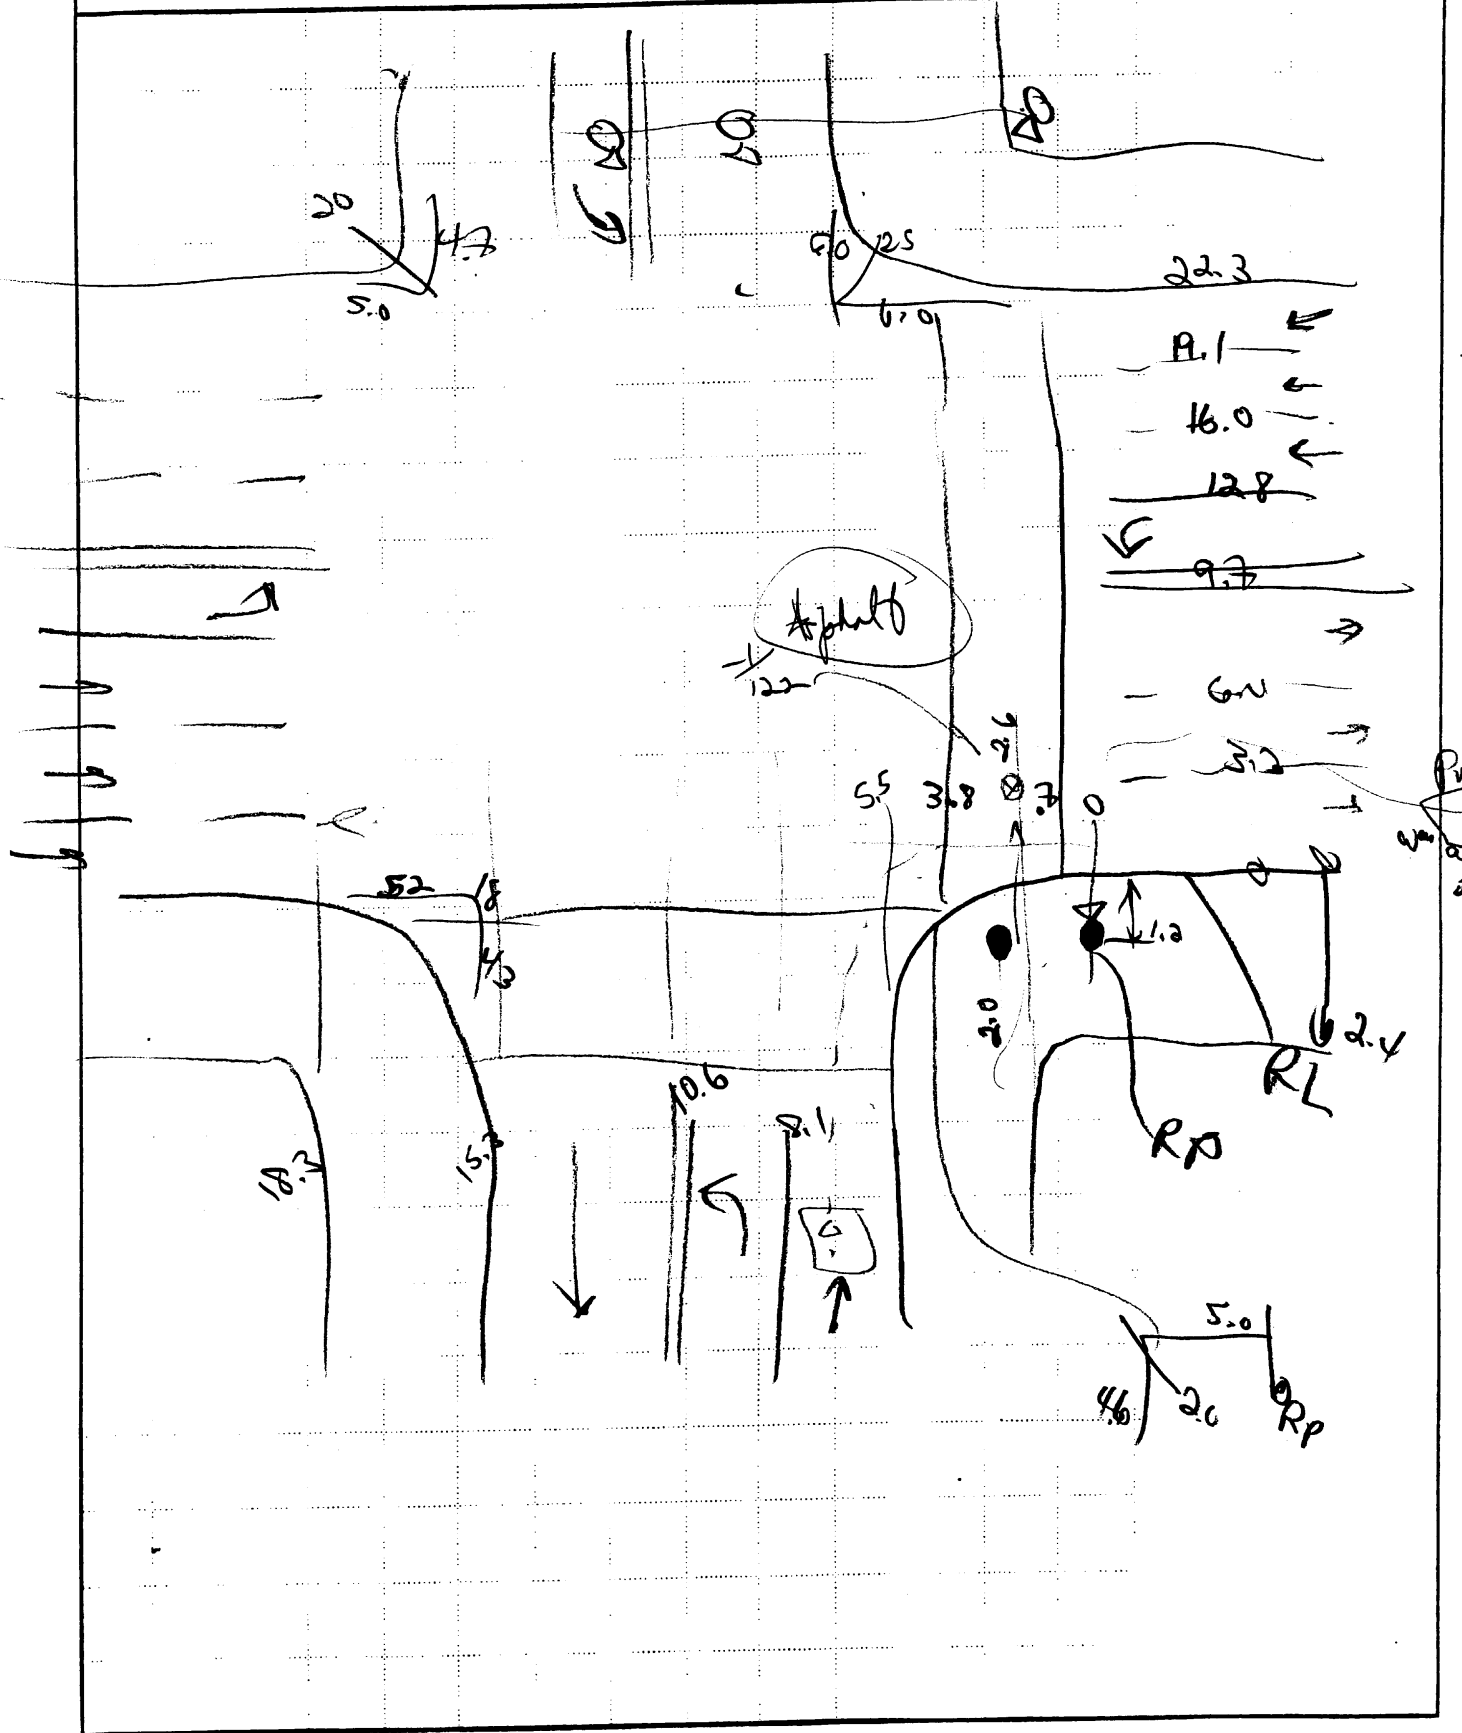 20
4.7
5.0
6.0
25
22.3
6.0
19.1
16.0
12.8
9.7
Asphalt
122
2.6
3.2
5.5
3.8
.7
0
.52
18
1.2
2.0
2.4
RL
10.6
8.1
RP
18.3
15.3
5.0
46
2.0
RP